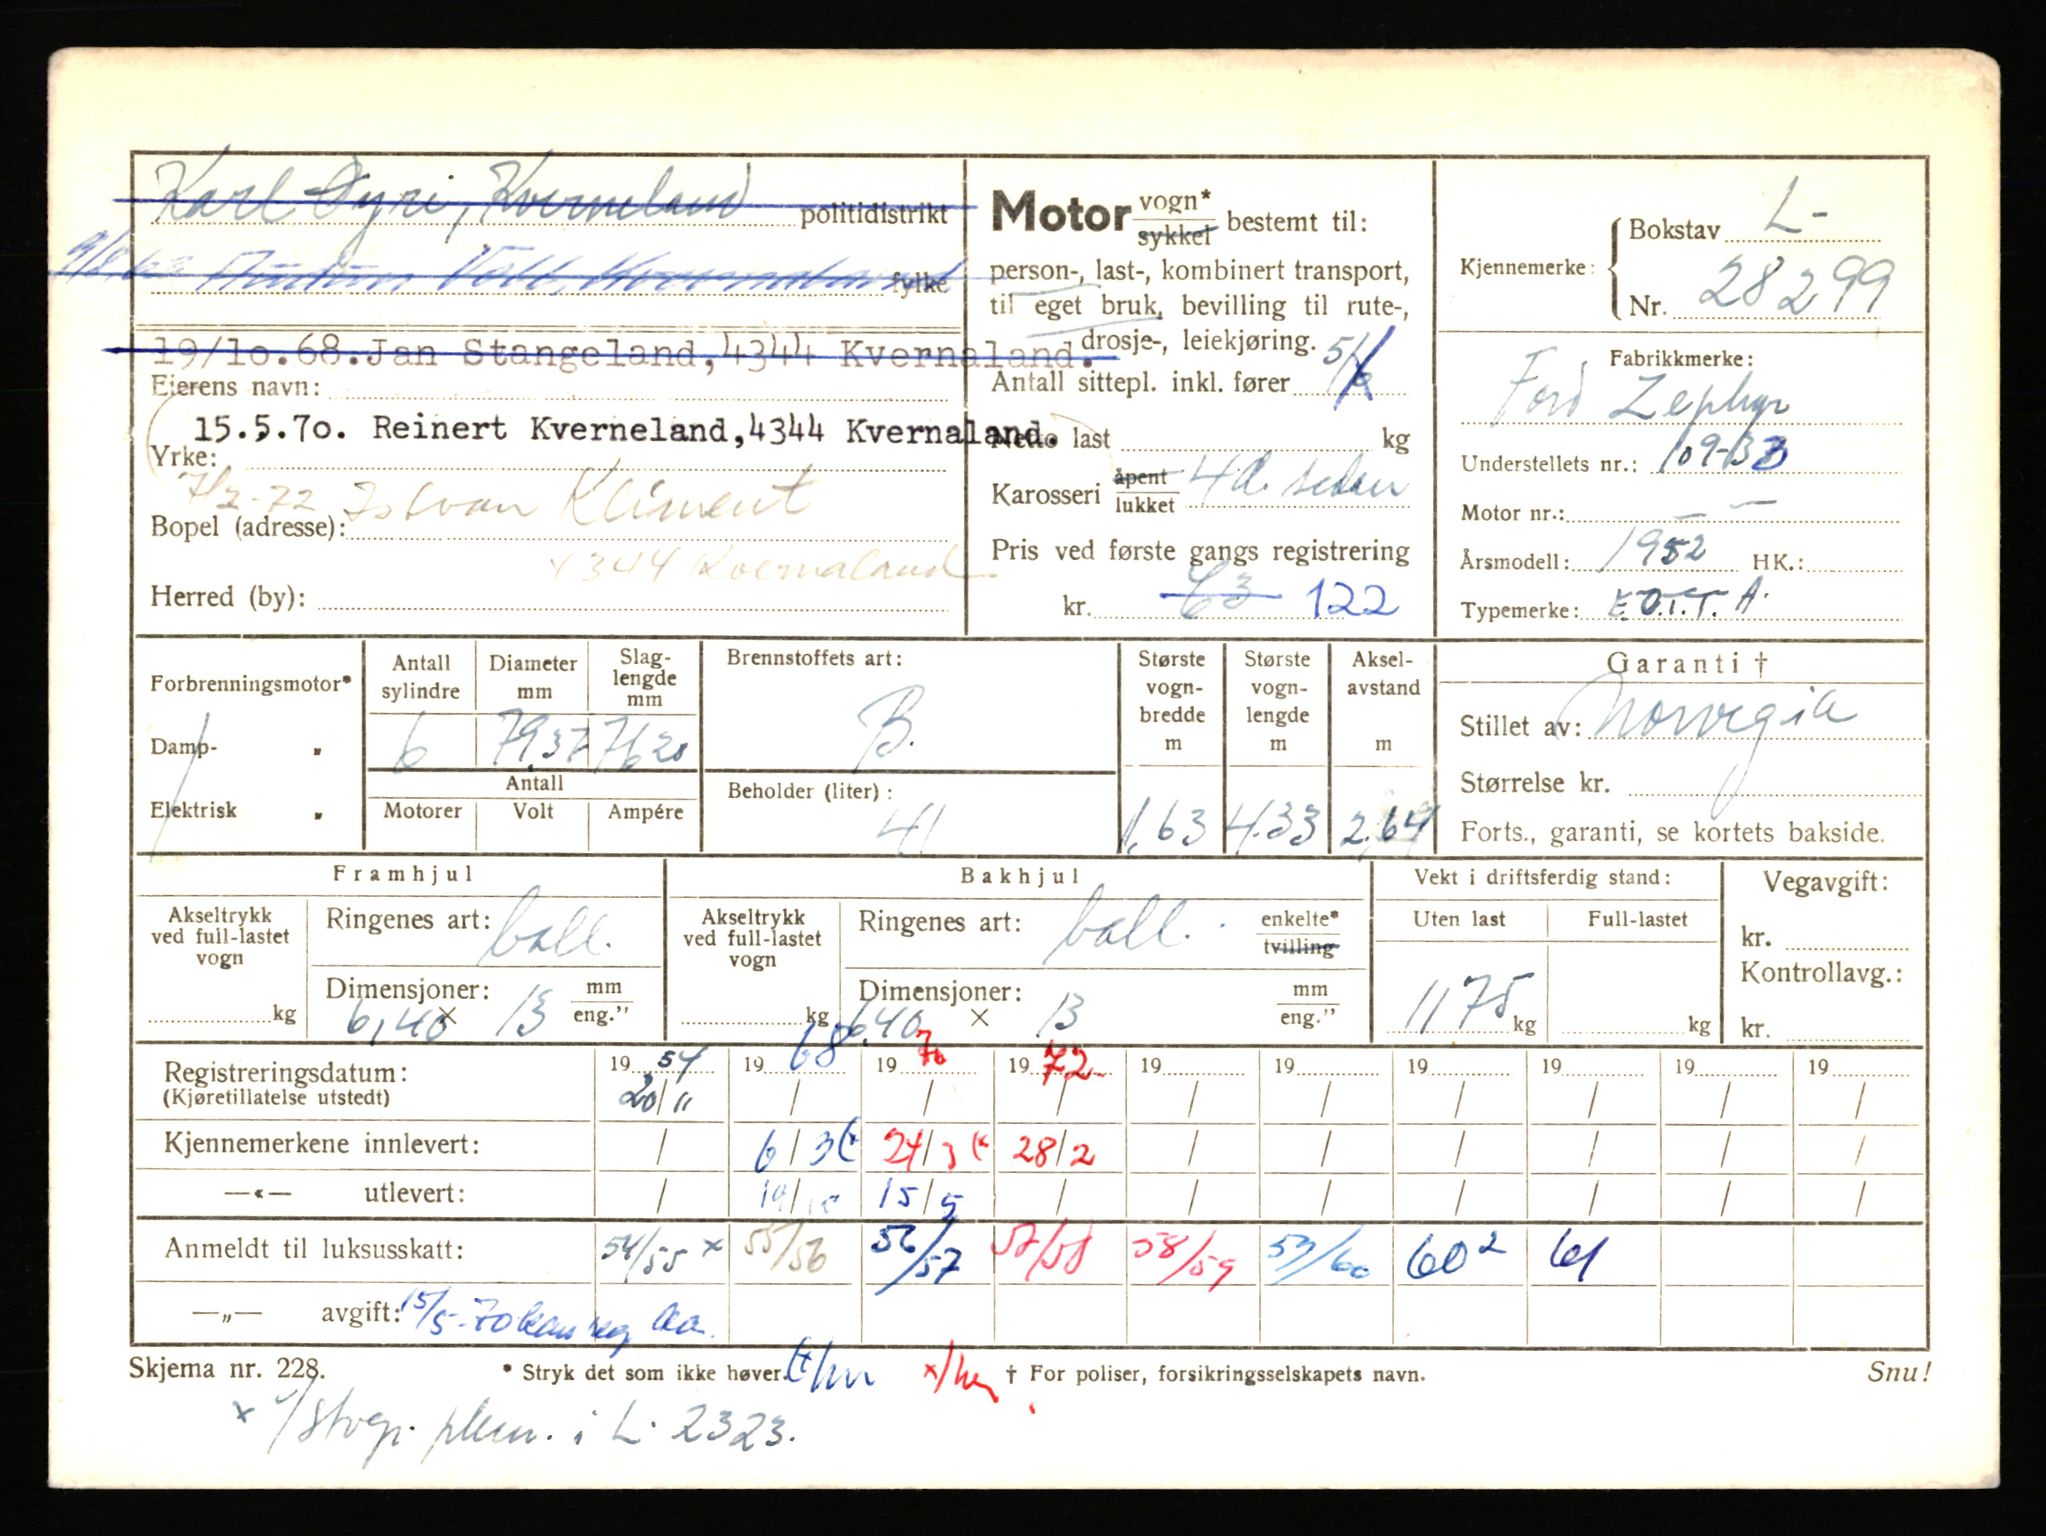 Karl Dyri, Kverneland politidistrikt
fylke
19/10.68. Jan Stangeland, 4344 Kvernaland.
Eierens navn:
15.5.70. Reinert Kverneland, 4344 Kvernaland.
Yrke:
7/2-72 Istvan Kliment
Bopel (adresse):
4344 Kvernaland
Herred (by):
Motor vogn* sykkel bestemt til:
person-, last-, kombinert transport,
til eget bruk, bevilling til rute-,
drosje-, leiekjøring.
Antall sittepl. inkl. fører 5/6
Netto last kg
Karosseri åpent lukket 4d. sedan
Pris ved første gangs registrering
kr. 63 122
Kjennemerke: Bokstav L-
Nr. 28299
Fabrikkmerke:
Ford Zephyr
Understellets nr.: 109-133
Motor nr.: — —
Årsmodell: 1952 HK.:
Typemerke: E.O.T.T.A.
Forbrenningsmotor*
Damp- „
Elektrisk „
Antall sylindre 6
Diameter mm 79,37
Slaglengde mm 76,20
Antall
Motorer Volt Ampére
Brennstoffets art:
B.
Beholder (liter):
41
Største vognbredde m 1,63
Største vognlengde m 4.33
Akselavstand m 2,64
Garanti †
Stillet av: Norvegia
Størrelse kr.
Forts., garanti, se kortets bakside.
Framhjul
Akseltrykk ved full-lastet vogn kg
Ringenes art: ball.
Dimensjoner: mm eng."
6,40 × 13
Bakhjul
Akseltrykk ved full-lastet vogn kg
Ringenes art: ball. enkelte* tvilling
Dimensjoner: mm eng."
6,40 × 13
Vekt i driftsferdig stand:
Uten last Full-lastet
1175 kg kg
Vegavgift:
kr.
Kontrollavg.:
kr.
Registreringsdatum: 19 54 19 68 19 70 19 72 19 19 19 19 19 19
(Kjøretillatelse utstedt) 20/11 / / / / / / / / /
Kjennemerkene innlevert: / 6/3 (x 24/3 (x 28/2 / / / / / /
—«— utlevert: / 19/10 15/5 / / / / / / /
Anmeldt til luksusskatt: 54/55 x 55/56 56/57 57/58 58/59 59/60 60² 61
—„— avgift: 15/5-70
Skjema nr. 228. * Stryk det som ikke høver. † For poliser, forsikringsselskapets navn. Snu!
i L. 2323.